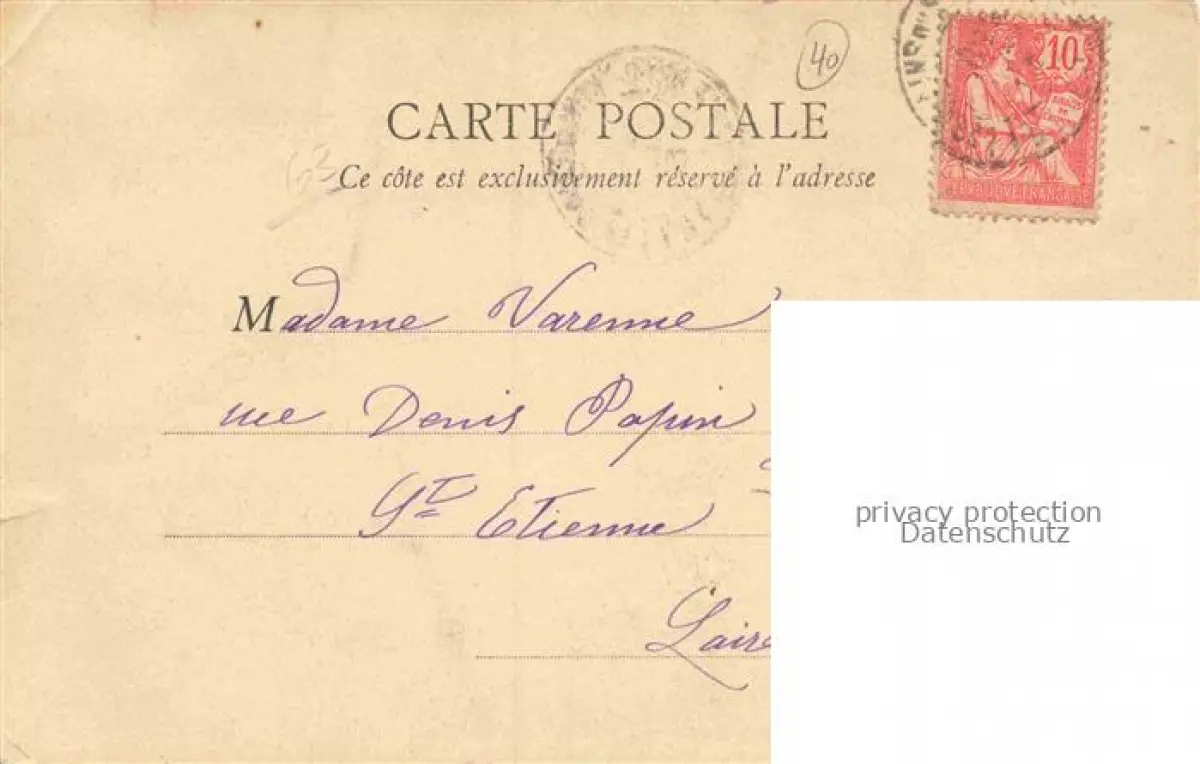 40
10
CARTE POSTALE
63
Ce côte est exclusivement réservé à l'adresse
REPUBLIQUE FRANCAISE
Madame Varenne
rue Denis Papin
St Etienne
Loire
privacy protection
Datenschutz